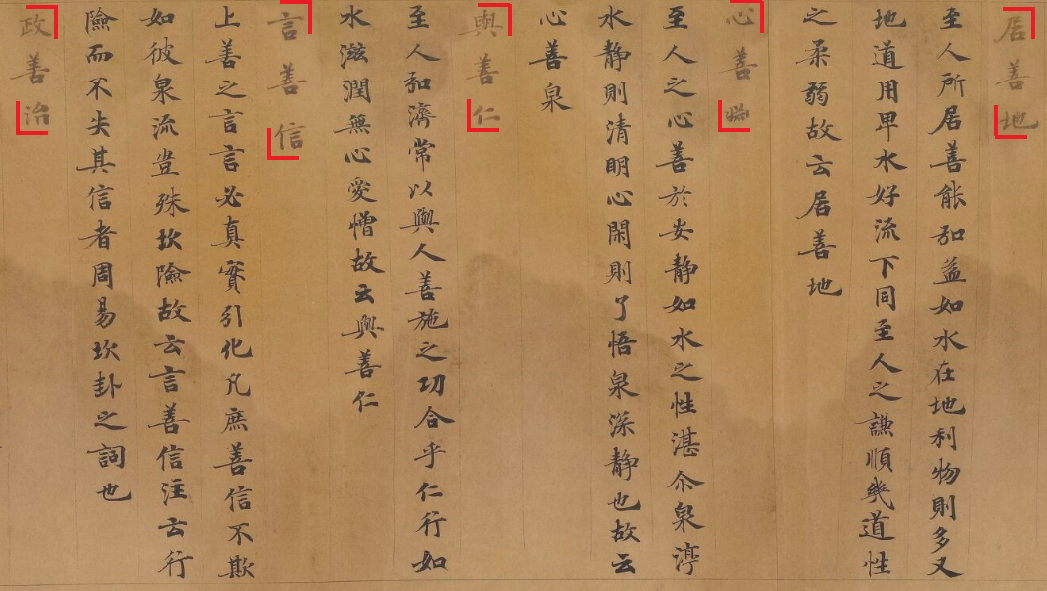 居善地
至人所居善能和益如水在地利物則多又
地道用卑水好流下同至人之謙順幾道性
之柔弱故云居善地
心善渊
至人之心善於安静如水之性湛尒泉渟
水静則清明心閑則了悟泉深静也故云
心善泉
與善仁
至人和濟常以與人善施之功合乎仁行如
水滋潤無心愛憎故云與善仁
言善信
上善之言言必真實引化凡庶善信不欺
如彼泉流豈殊坎險故云言善信注云行
險而不失其信者周易坎卦之詞也
政善治